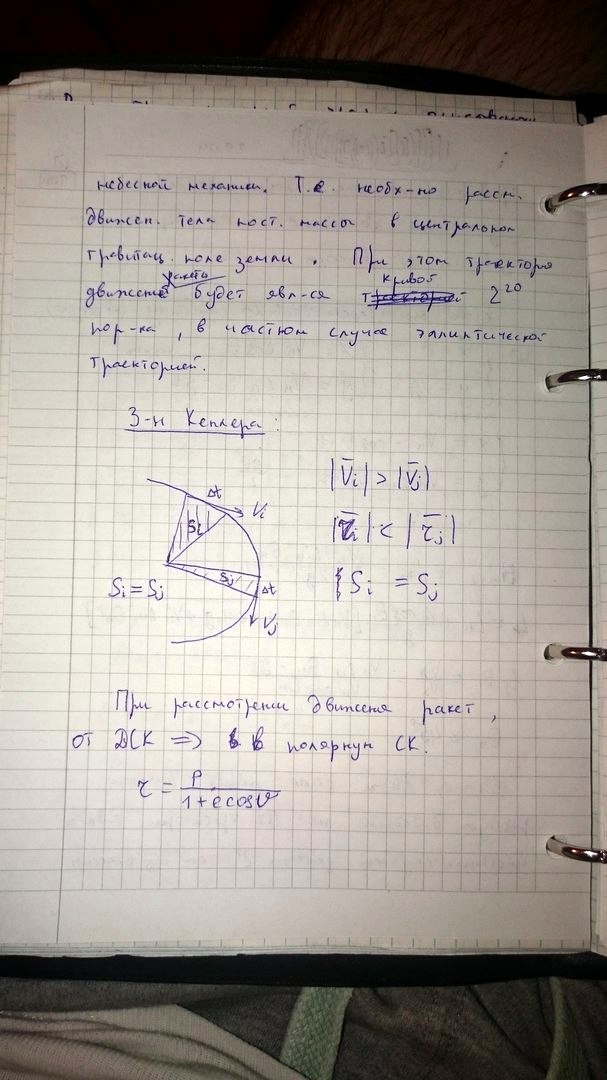 небесной механики. Т.е. необх-но рассм.
движен. тела пост. массы в центральном
гравитац. поле земли. При этом траектория
ракеты кривой
движения будет явл-ся 2го
пор-ка, в частном случае эллиптической
траекторией.
З-н Кеплера:
|V̄i| > |V̄j|
Δt
Vi
Si
|r̄i| < |r̄j|
Sj
Si = Sj
Si = Sj
Δt
Vj
При рассмотрении движения ракет,
от ДСК => в полярную СК:
r = p / (1 + e cos ν)